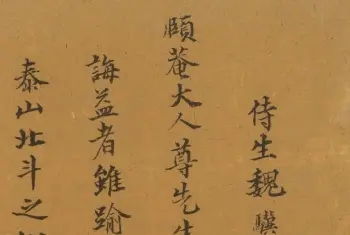 侍生魏驥
頤菴大人尊先生
誨益者雖踰
泰山北斗之